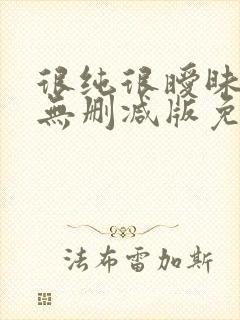 很纯很曖昧
無删减版免
法布雷加斯